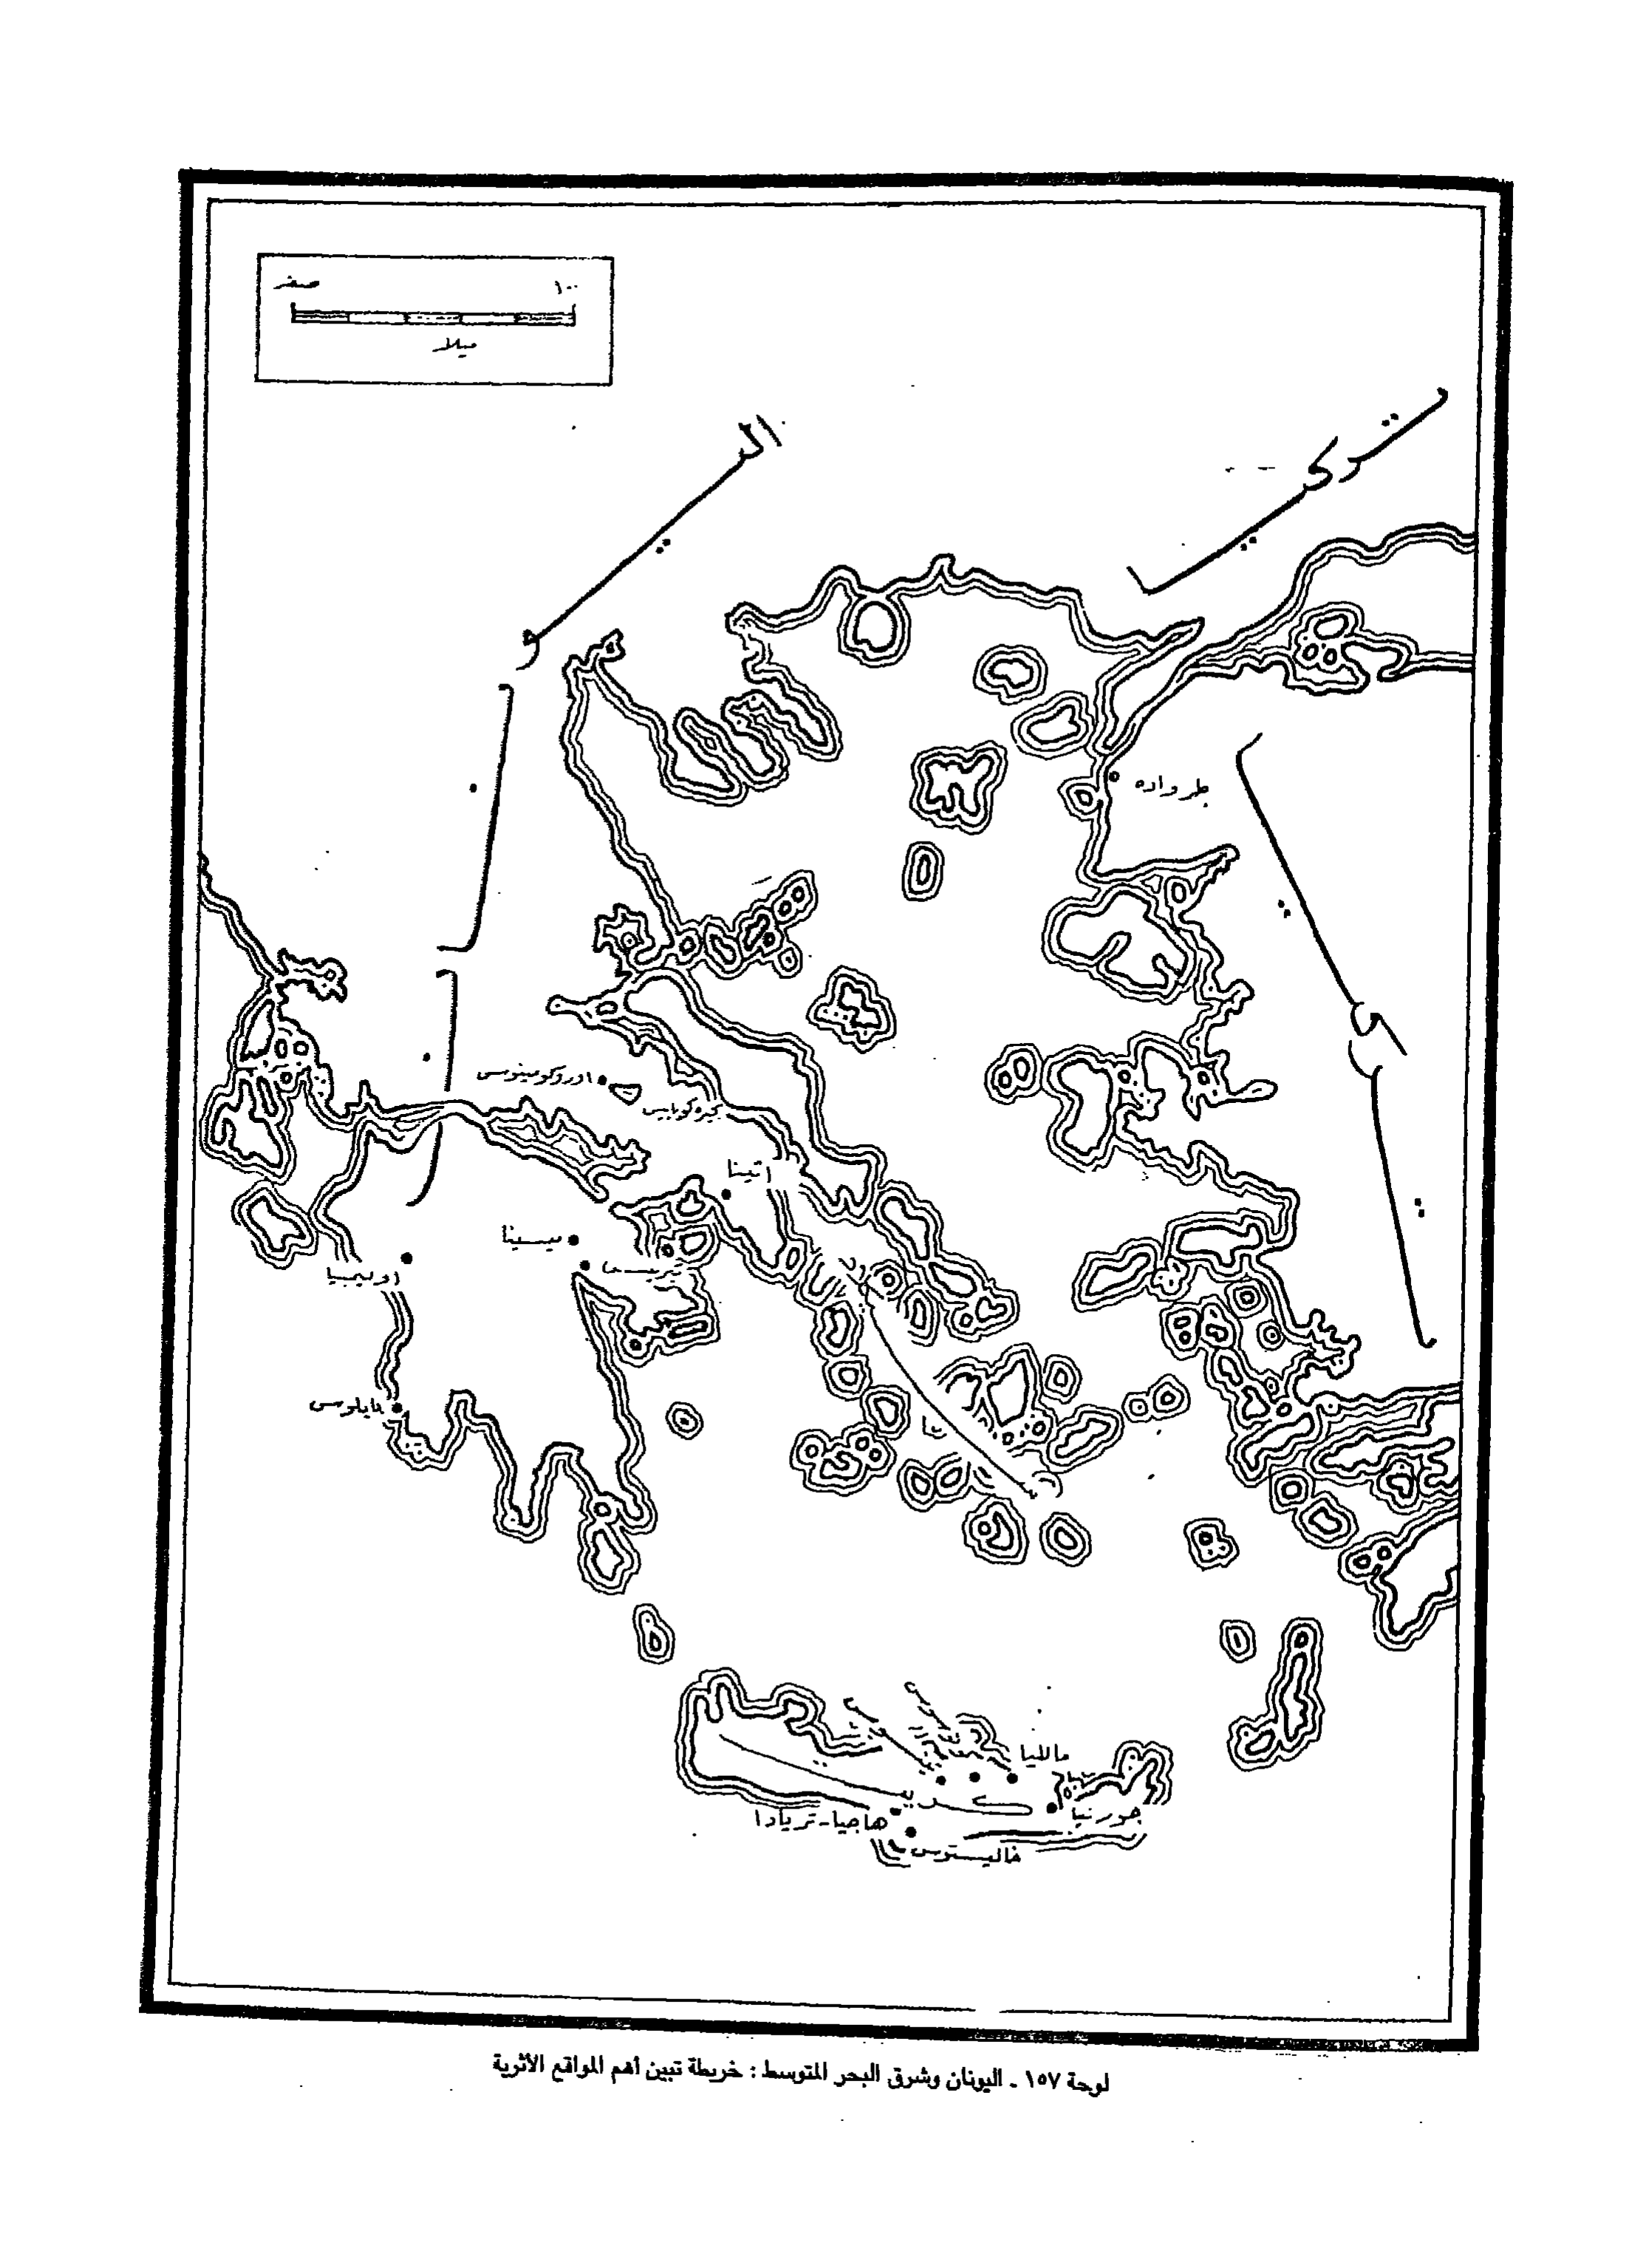 صفر ١٠٠
ميلا
اليونان
تركيا
تركيا
طرواده
اوروكومينوس
اتينا
ميسينا
اوليمبيا
بايلوس
ماليا
كريت
جورنيا
هاجيا - تريادا
فاليستوس
لوحة ١٥٧ - اليونان وشرق البحر المتوسط : خريطة تبين أهم المواقع الأثرية